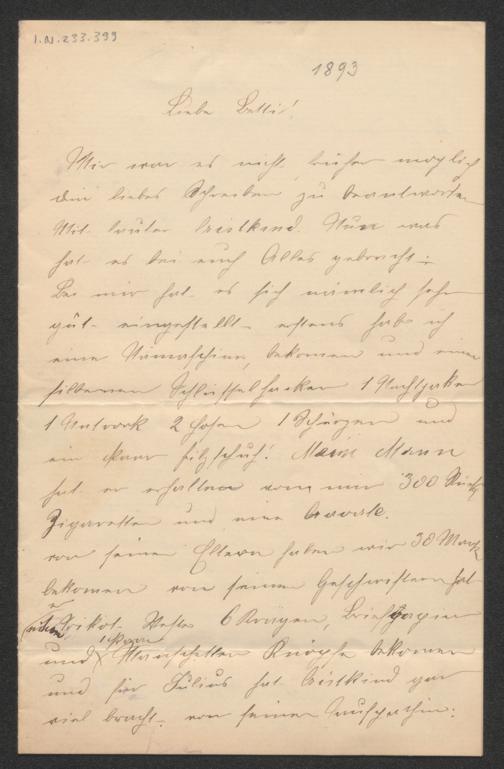 I.N. 233.399
1893
Liebe Betti!
Mir war es nicht früher möglich
dein liebes Schreiben zu beantworten
Mit lauter Cristkind. Nun was
hat es bei euch Alles gebracht.
Bei mir hat es sich nämlich sehr
gut eingestellt erstens hab ich
eine bekomen und einen
silbernen Schlüsselhacken 1 Nachtjaken
1 Unterock 2 Hosen 1 Schürzen und
ein Paar filzschuh! Mein Mann
hat er erhalten von mir 300 Stück
Zigaretten und eine Cravate.
von seinen Eltern haben wir 30 Mark
bekomen von seinen Geschwistern hat
er Trikot Weste 6 Krägen, Briefpapier
und 1 Paar Manschetten Knöpfe bekomen
und für Julius hat Cristkind gar
viel bracht. von seiner Taufpathin.